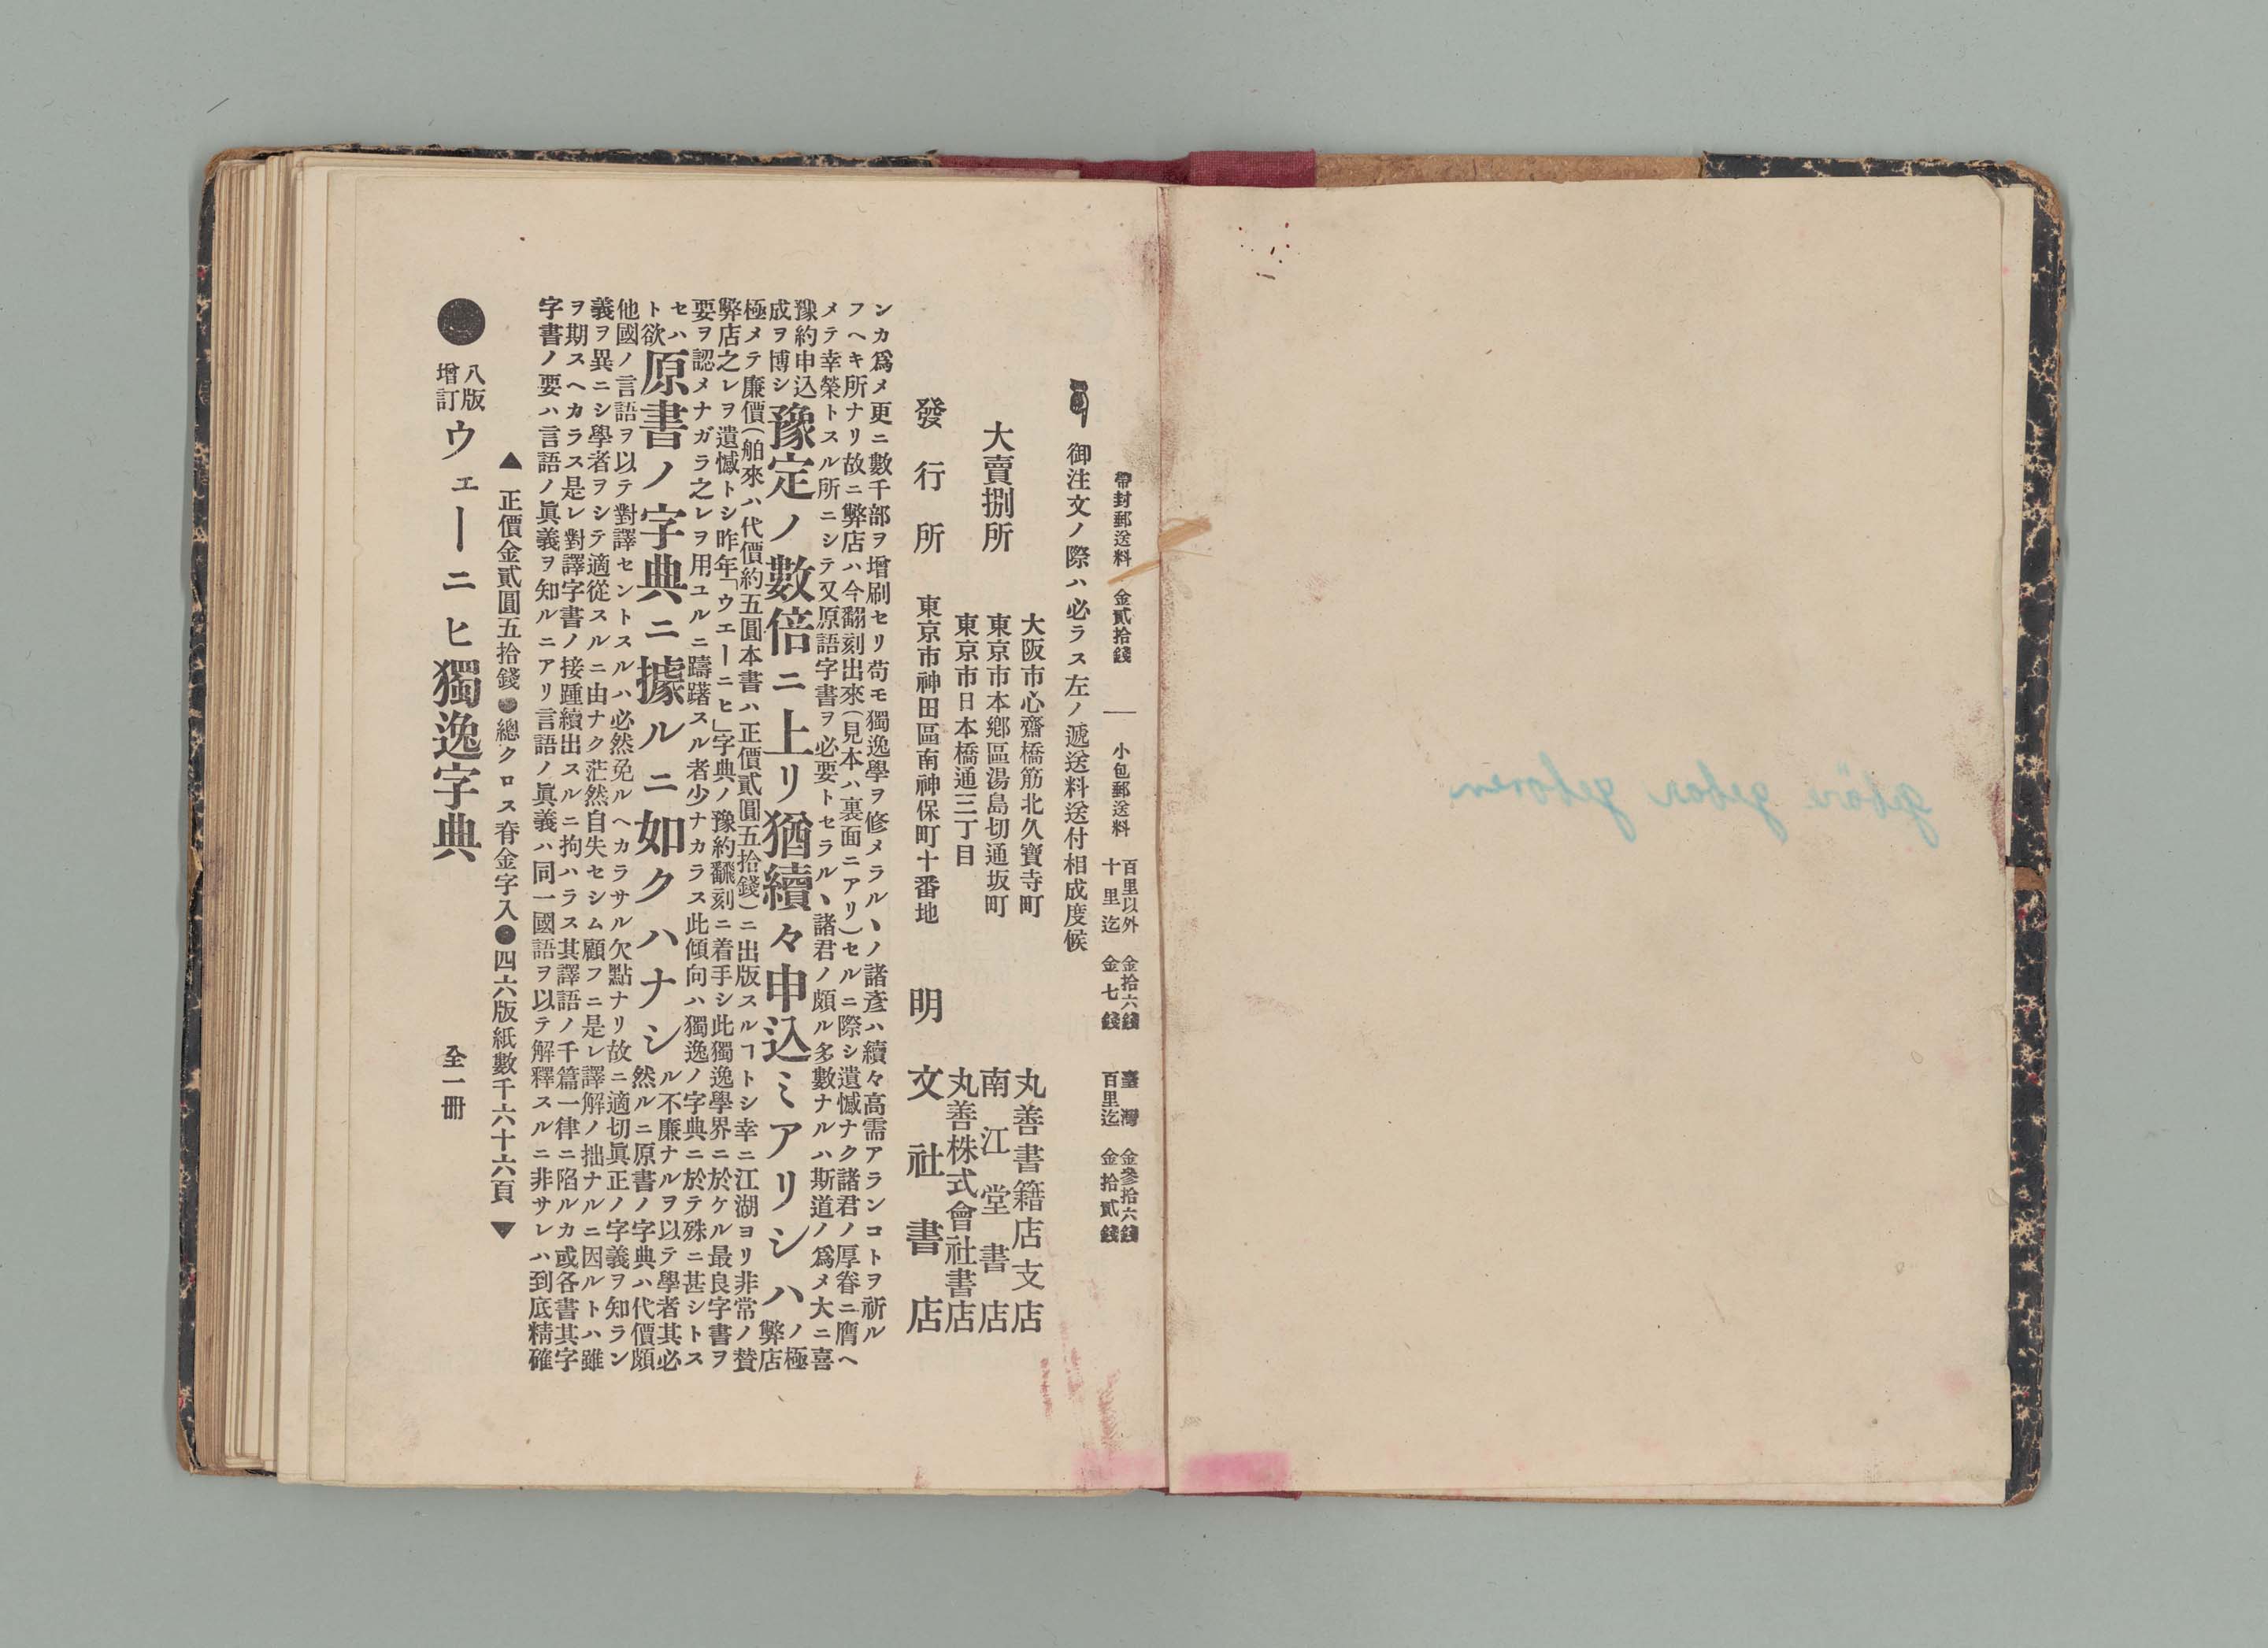 ●八版増訂ウェーニヒ獨逸字典 全一冊
▲正價金貳圓五拾錢●總クロス脊金字入●四六版紙數千六十六頁▼
字書ノ要ハ言語ノ眞義ヲ知ルニアリ言語ノ眞義ハ同一國語ヲ以テ解釋スルニ非サレハ到底精確
ヲ期スヘカラス是レ對譯字書ノ接踵續出スルニ拘ハラス其譯語ノ千篇一律ニ陷ルカ或各書其字
義ヲ異ニシ學者ヲシテ適從スルニ由ナク茫然自失セシム顧フニ是レ譯解ノ拙ナルニ因ルトハ雖
他國ノ言語ヲ以テ對譯セントスルハ必然免ルヘカラサル欠點ナリ故ニ適切眞正ノ字義ヲ知ラン
ト欲セハ原書ノ字典ニ據ルニ如クハナシ然ルニ原書ノ字典ハ代價頗ル不廉ナルヲ以テ學者其必
要ヲ認メナガラ之レヲ用ユルニ躊躇スル者少ナカラス此傾向ハ獨逸ノ字典ニ於テ殊ニ甚シトス
弊店之レヲ遺憾トシ昨年「ウエーニヒ」字典ノ豫約飜刻ニ着手シ此獨逸學界ニ於ケル最良字書ヲ
極メテ廉價(舶來ハ代價約五圓本書ハ正價貳圓五拾錢)ニ出版スルヿトシ幸ニ江湖ヨリ非常ノ賛
成ヲ博シ豫約申込豫定ノ數倍ニ上リ猶續々申込ミアリシハ弊店ノ極
メテ幸榮トスル所ニシテ又原語字書ヲ必要トセラルヽ諸君ノ頗ル多數ナルハ斯道ノ爲メ大ニ喜
フヘキ所ナリ故ニ弊店ハ今翻刻出來(見本ハ裏面ニアリ)セルニ際シ遺憾ナク諸君ノ厚眷ニ膺ヘ
ンカ爲メ更ニ數千部ヲ増刷セリ苟モ獨逸學ヲ修メラルヽノ諸彥ハ續々高需アランコトヲ祈ル
發行所 東京市神田區南神保町十番地 明文社書店
大賣捌所
東京市日本橋通三丁目 丸善株式會社書店
東京市本鄕區湯島切通坂町 南江堂書店
大阪市心齋橋筋北久寶寺町 丸善書籍店支店
御注文ノ際ハ必ラス左ノ遞送料送付相成度候
帶封郵送料 金貳拾錢 ― 小包郵送料 十里迄 金七錢 百里以外 金拾六錢 百里迄 金拾貳錢 臺灣 金參拾六錢
gebäre gebar geboren